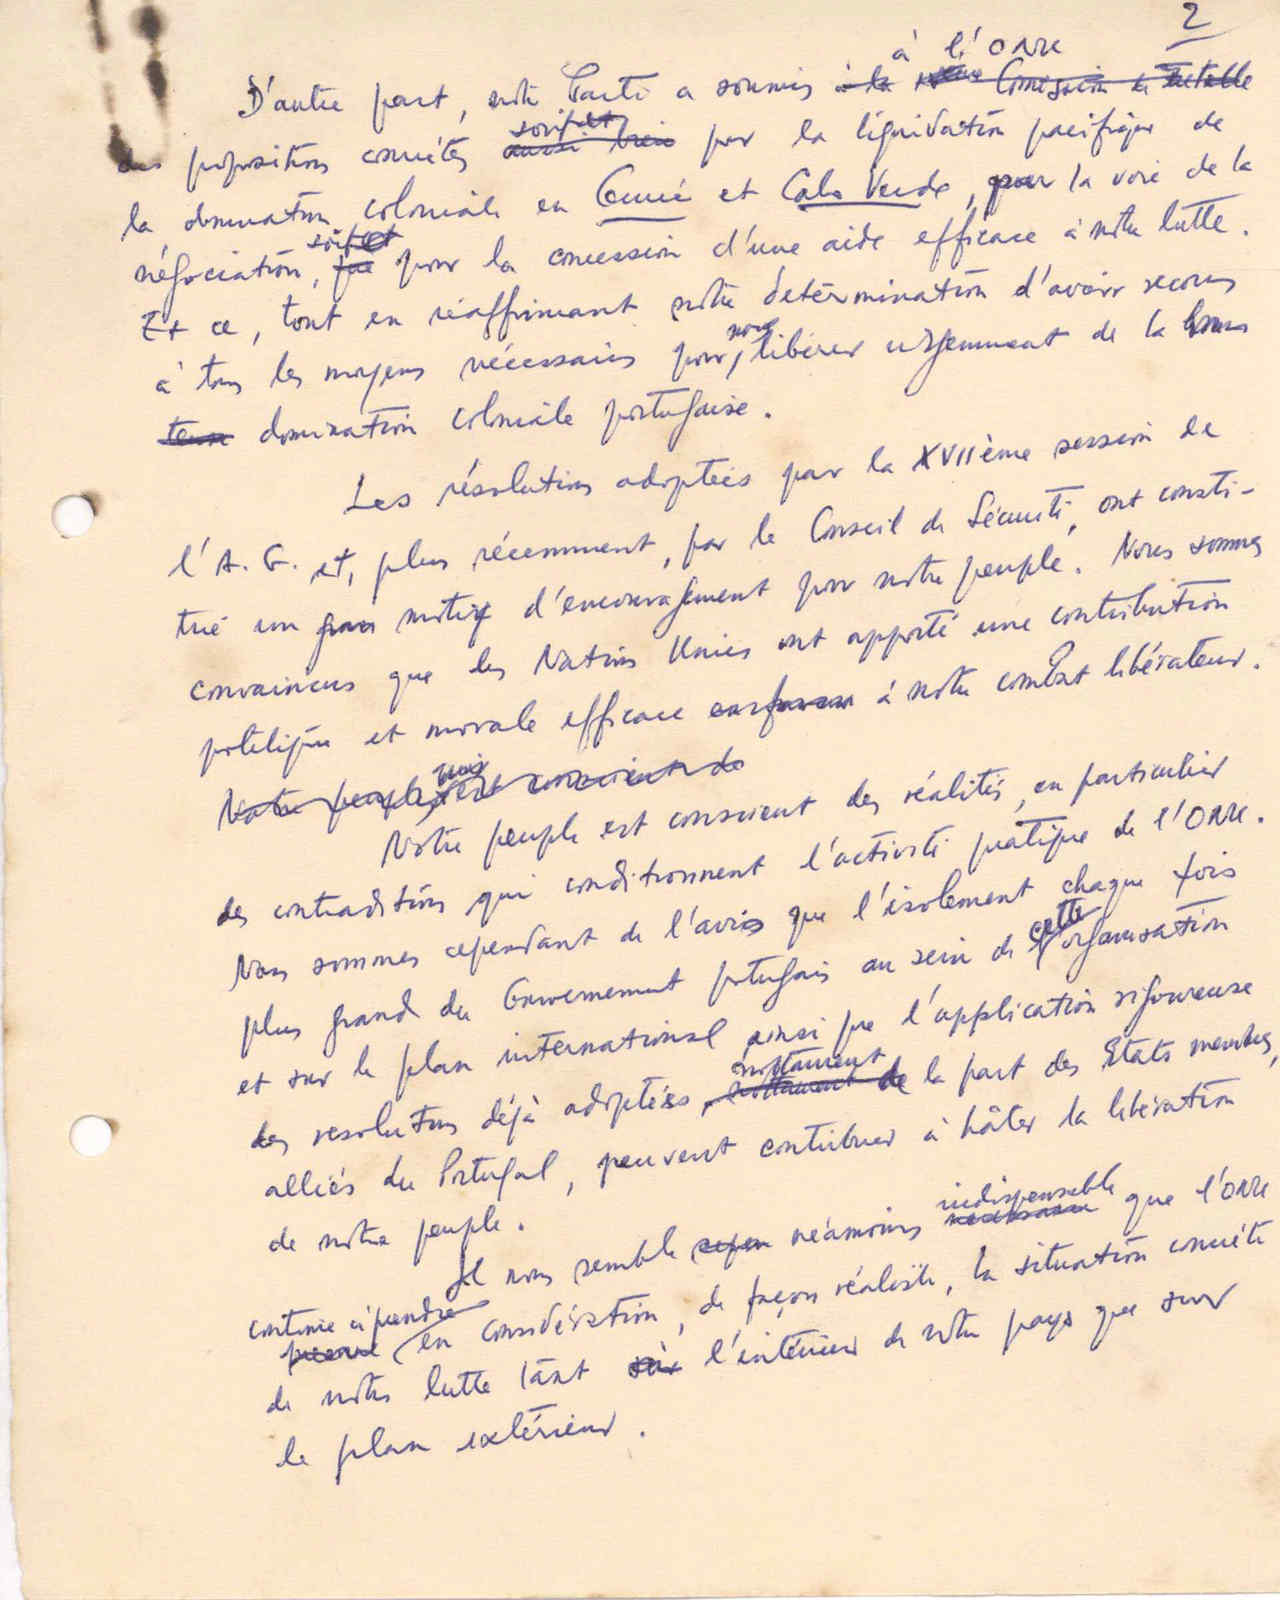 2
à l'ONU
D'autre part, notre Parti a soumis à la Comission de
des propositions concrètes soit aussi bien par la liquidation pacifique de
la domination coloniale en Guiné et Cabo Verde, par la voie de la
négociation, soit que pour la concession d'une aide efficace à notre lutte.
Et ce, tout en réaffirmant notre détermination d'avoir recours
à tous les moyens nécessaires pour nous libérer urgemment de la
domination coloniale portugaise.
Les résolutions adoptées par la XVIIème session de
l'A. G. et, plus récemment, par le Conseil de Sécurité, ont consti-
tué un grand motif d'encouragement pour notre peuple. Nous sommes
convaincus que les Nations Unies ont apporté une contribution
politique et morale efficace à notre combat libérateur.
Notre peuple est conscient de
Notre peuple est conscient des réalités, en particulier
des contraditions qui conditionnent l'activité pratique de l'ONU.
Nous sommes cependant de l'avis que l'isolement chaque fois
plus grand du Gouvernement portugais au sein de cette organisation
et sur le plan international ainsi que l'application rigoureuse
des resolutions déjà adoptées, nottament nottament de la part des Etats membres,
alliés du Portugal, peuvent contribuer à hâter la libération
de notre peuple.
Il nous semble néamoins indispensable necessaire que l'ONU
continue à prendre prenne en considération, de façon réaliste, la situation concrète
de notre lutte tant sur à l'intérieur de notre pays que sur
le plan extérieur.